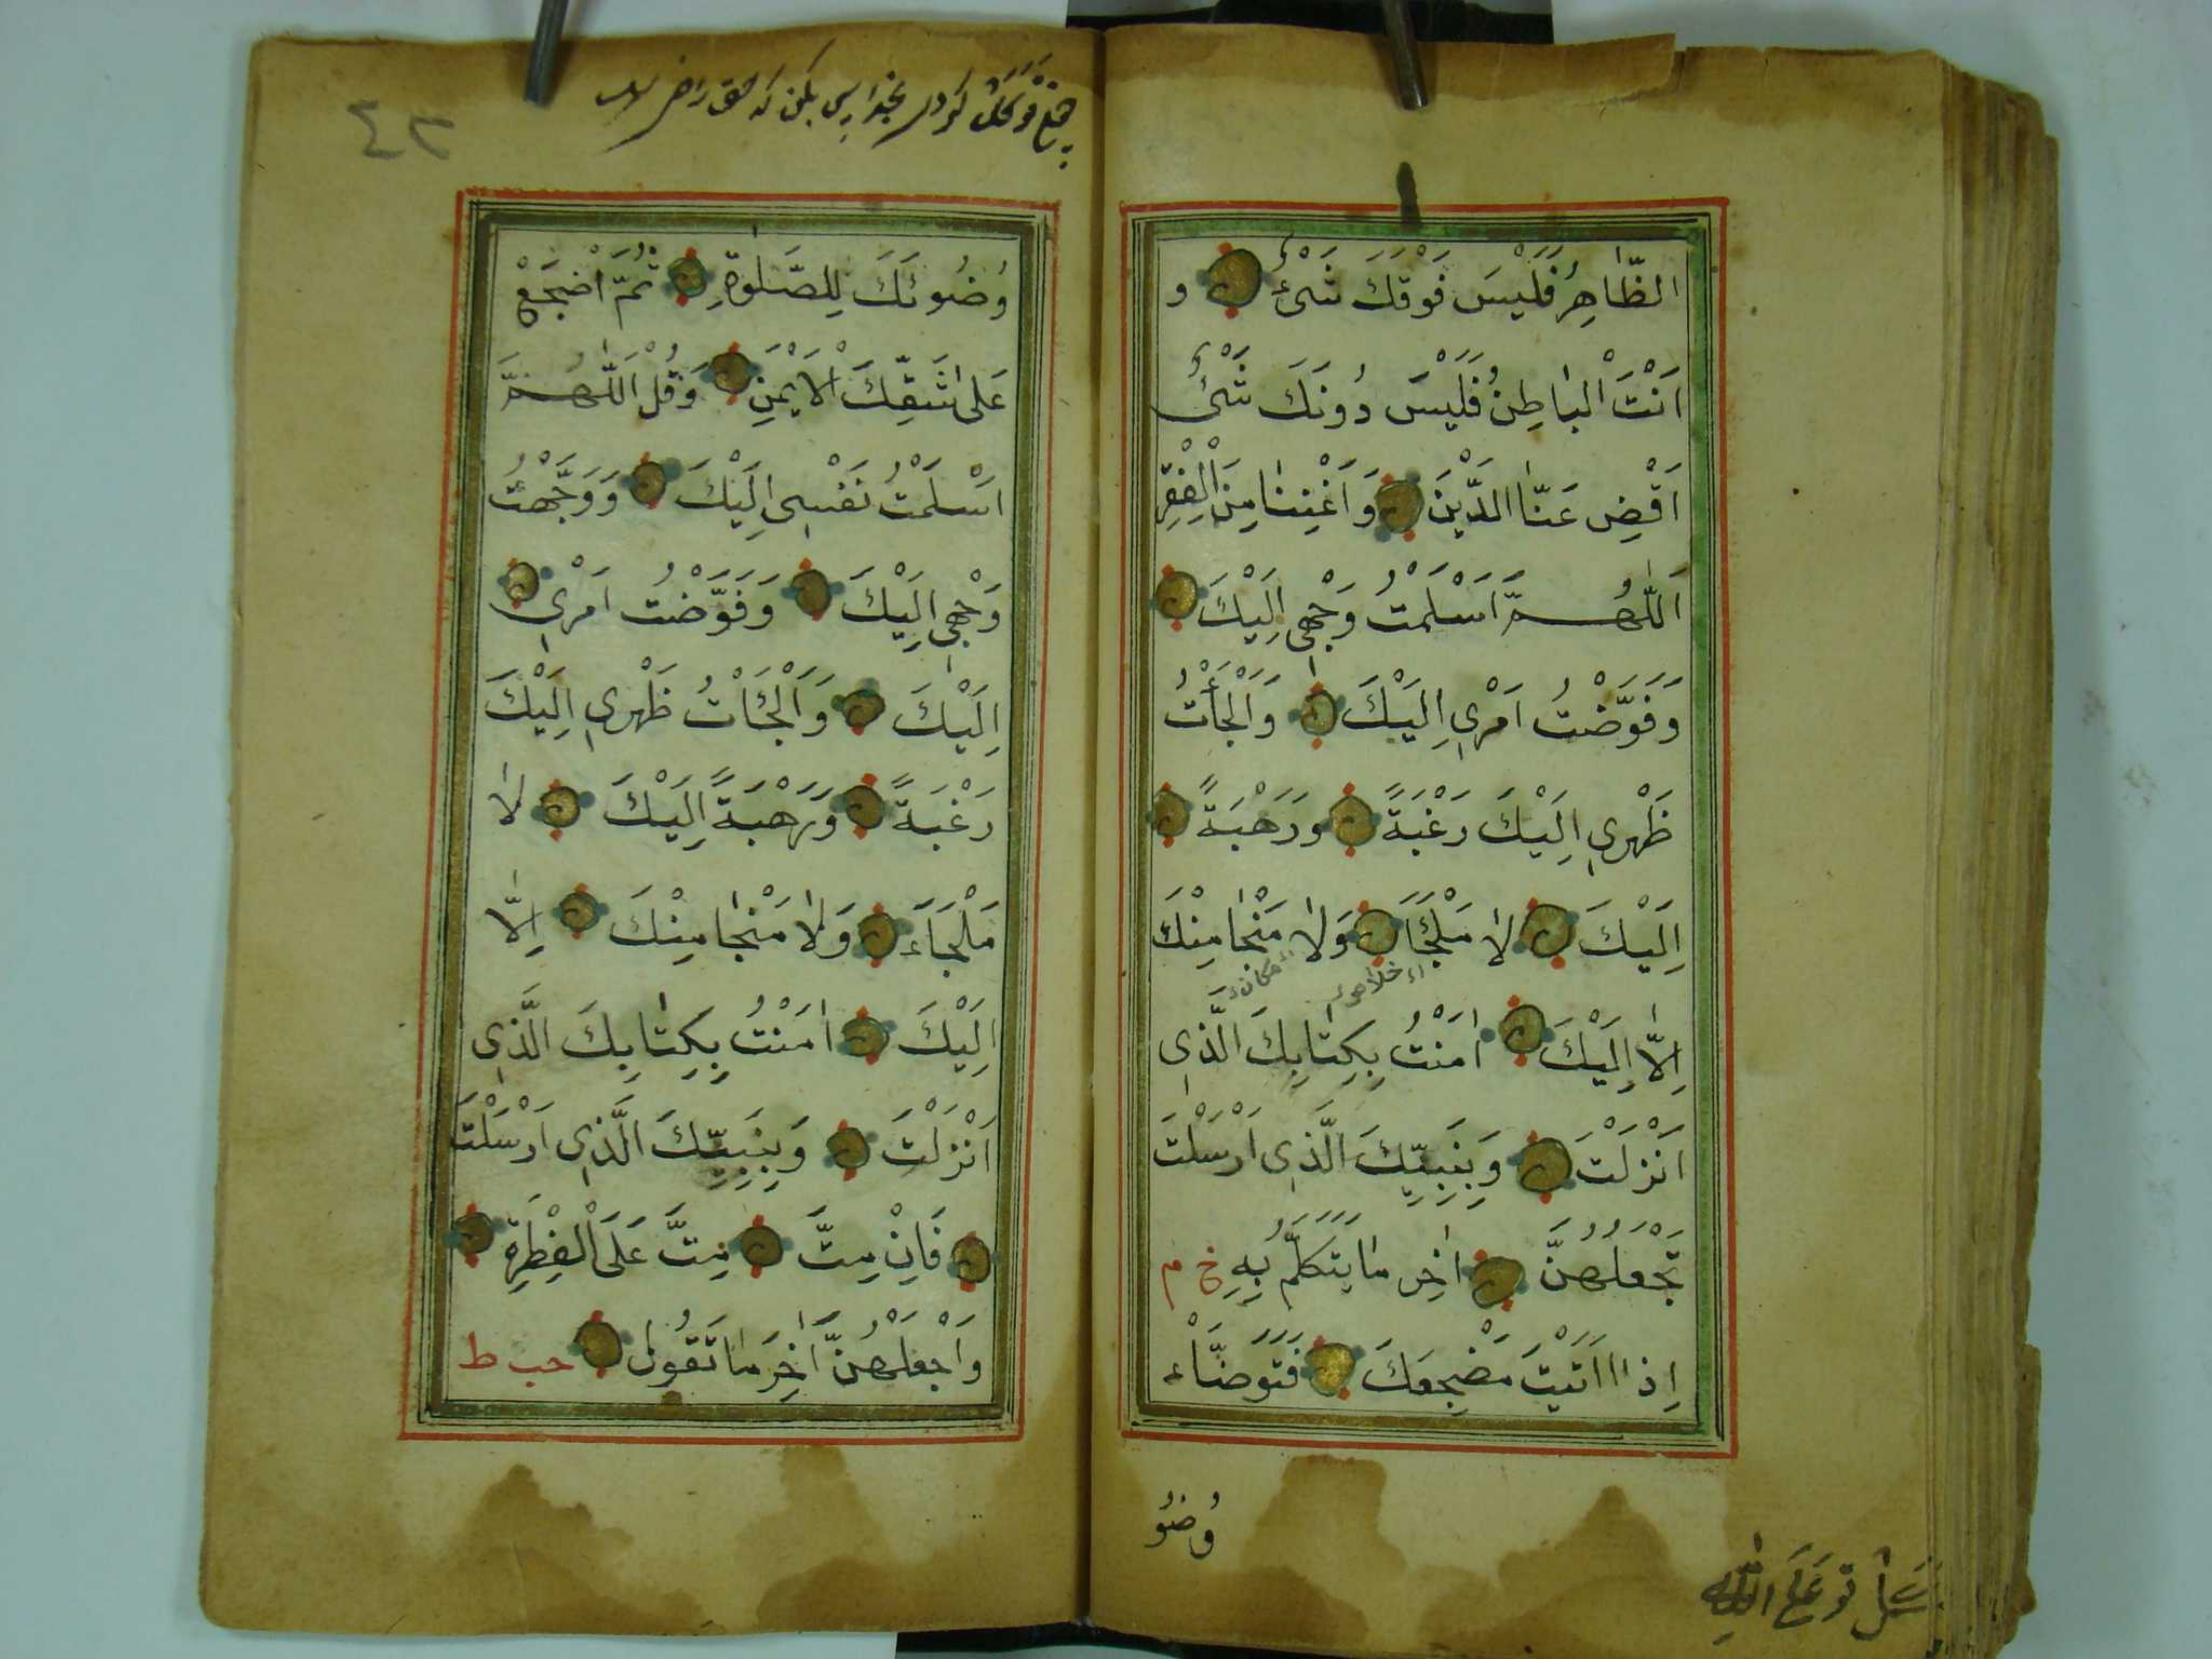 الظّٰاهِرُ فَلَيْسَ فَوْقَكَ شَىْءٌ و
اَنْتَ الْبٰاطِنُ فَلَيْسَ دُونَكَ شَىْءٌ
اَقْضِ عَنّٰا الدَّيْنَ وَ اَغْنِنٰا مِنَ الْفَقْرِ
اَللّٰهُمَّ اَسْلَمْتُ وَجْهِى اِلَيْكَ
وَفَوَّضْتُ اَمْرِى اِلَيْكَ وَاَلْجَأْتُ
ظَهْرِى اِلَيْكَ رَغْبَةً ورَهْبَةً
اِلَيْكَ لاٰ مَلْجَأَ وَلاٰ مَنْجٰا مِنْكَ
اِلاّٰ اِلَيْكَ اٰمَنْتُ بِكِتٰابِكَ الَّذِى
اَنْزَلْتَ وَبِنَبِيِّكَ الَّذِى اَرْسَلْتَ
تَجْعَلُهُنَّ اٰخِرَ مٰا يَتَكَلَّمُ بِهِ خ م
اِذٰا اَتَيْتَ مَضْجِعَكَ فَتَوَضَّاْء
وُضُو
وُضُوئَكَ لِلصَّلٰوةِ ثُمَّ اَضْجَعْ
عَلىٰ شَقِّكَ الْاَيْمَنِ وَقُلْ اَللّٰهُمَّ
اَسْلَمْتُ نَفْسِى اِلَيْكَ وَوَجَّهْتُ
وَجْهِى اِلَيْكَ وَفَوَّضْتُ اَمْرِى
اِلَيْكَ وَاَلْجَئَاْتُ ظَهْرِى اِلَيْكَ
رَغْبَةً وَرَهْبَةً اِلَيْكَ لاٰ
مَلْجَاَءَ وَلاٰ مَنْجٰا مِنْكَ اِلّٰا
اِلَيْكَ اٰمَنْتُ بِكِتٰابِكَ الَّذِى
اَنْزَلْتَ وَبِنَبِيِّكَ الَّذِى اَرْسَلْتَ
فَاِنْ مِتَّ مِتَّ عَلَى الْفِطْرَةِ
وَاَجْعَلْهُنَّ اٰخِرَ مٰا تَقُولُ حب ط